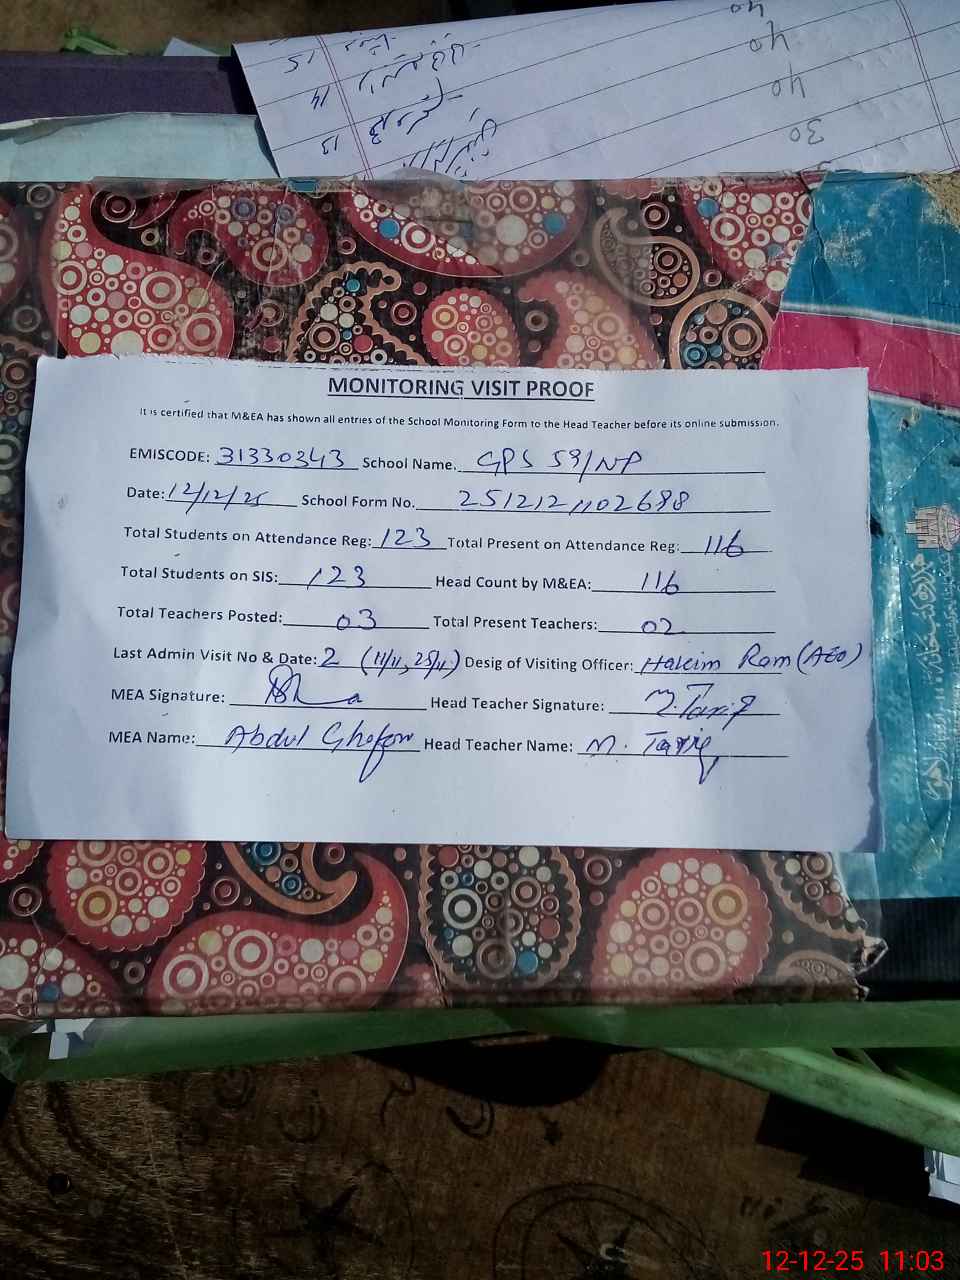 40
15
40
14
40
13
30
MONITORING VISIT PROOF
It is certified that M&EA has shown all entries of the School Monitoring Form to the Head Teacher before its online submission.
EMISCODE: 31330343 School Name. GPS 59/NP
Date: 12/12/25 School Form No. 2512121102688
Total Students on Attendance Reg: 123 Total Present on Attendance Reg: 116
Total Students on SIS: 123 Head Count by M&EA: 116
Total Teachers Posted: 03 Total Present Teachers: 02
Last Admin Visit No & Date: 2 (11/11, 25/11) Desig of Visiting Officer: Hakim Ram (AEO)
MEA Signature: Head Teacher Signature: M. Tariq
MEA Name: Abdul Ghafoor Head Teacher Name: M. Tariq
12-12-25 11:03